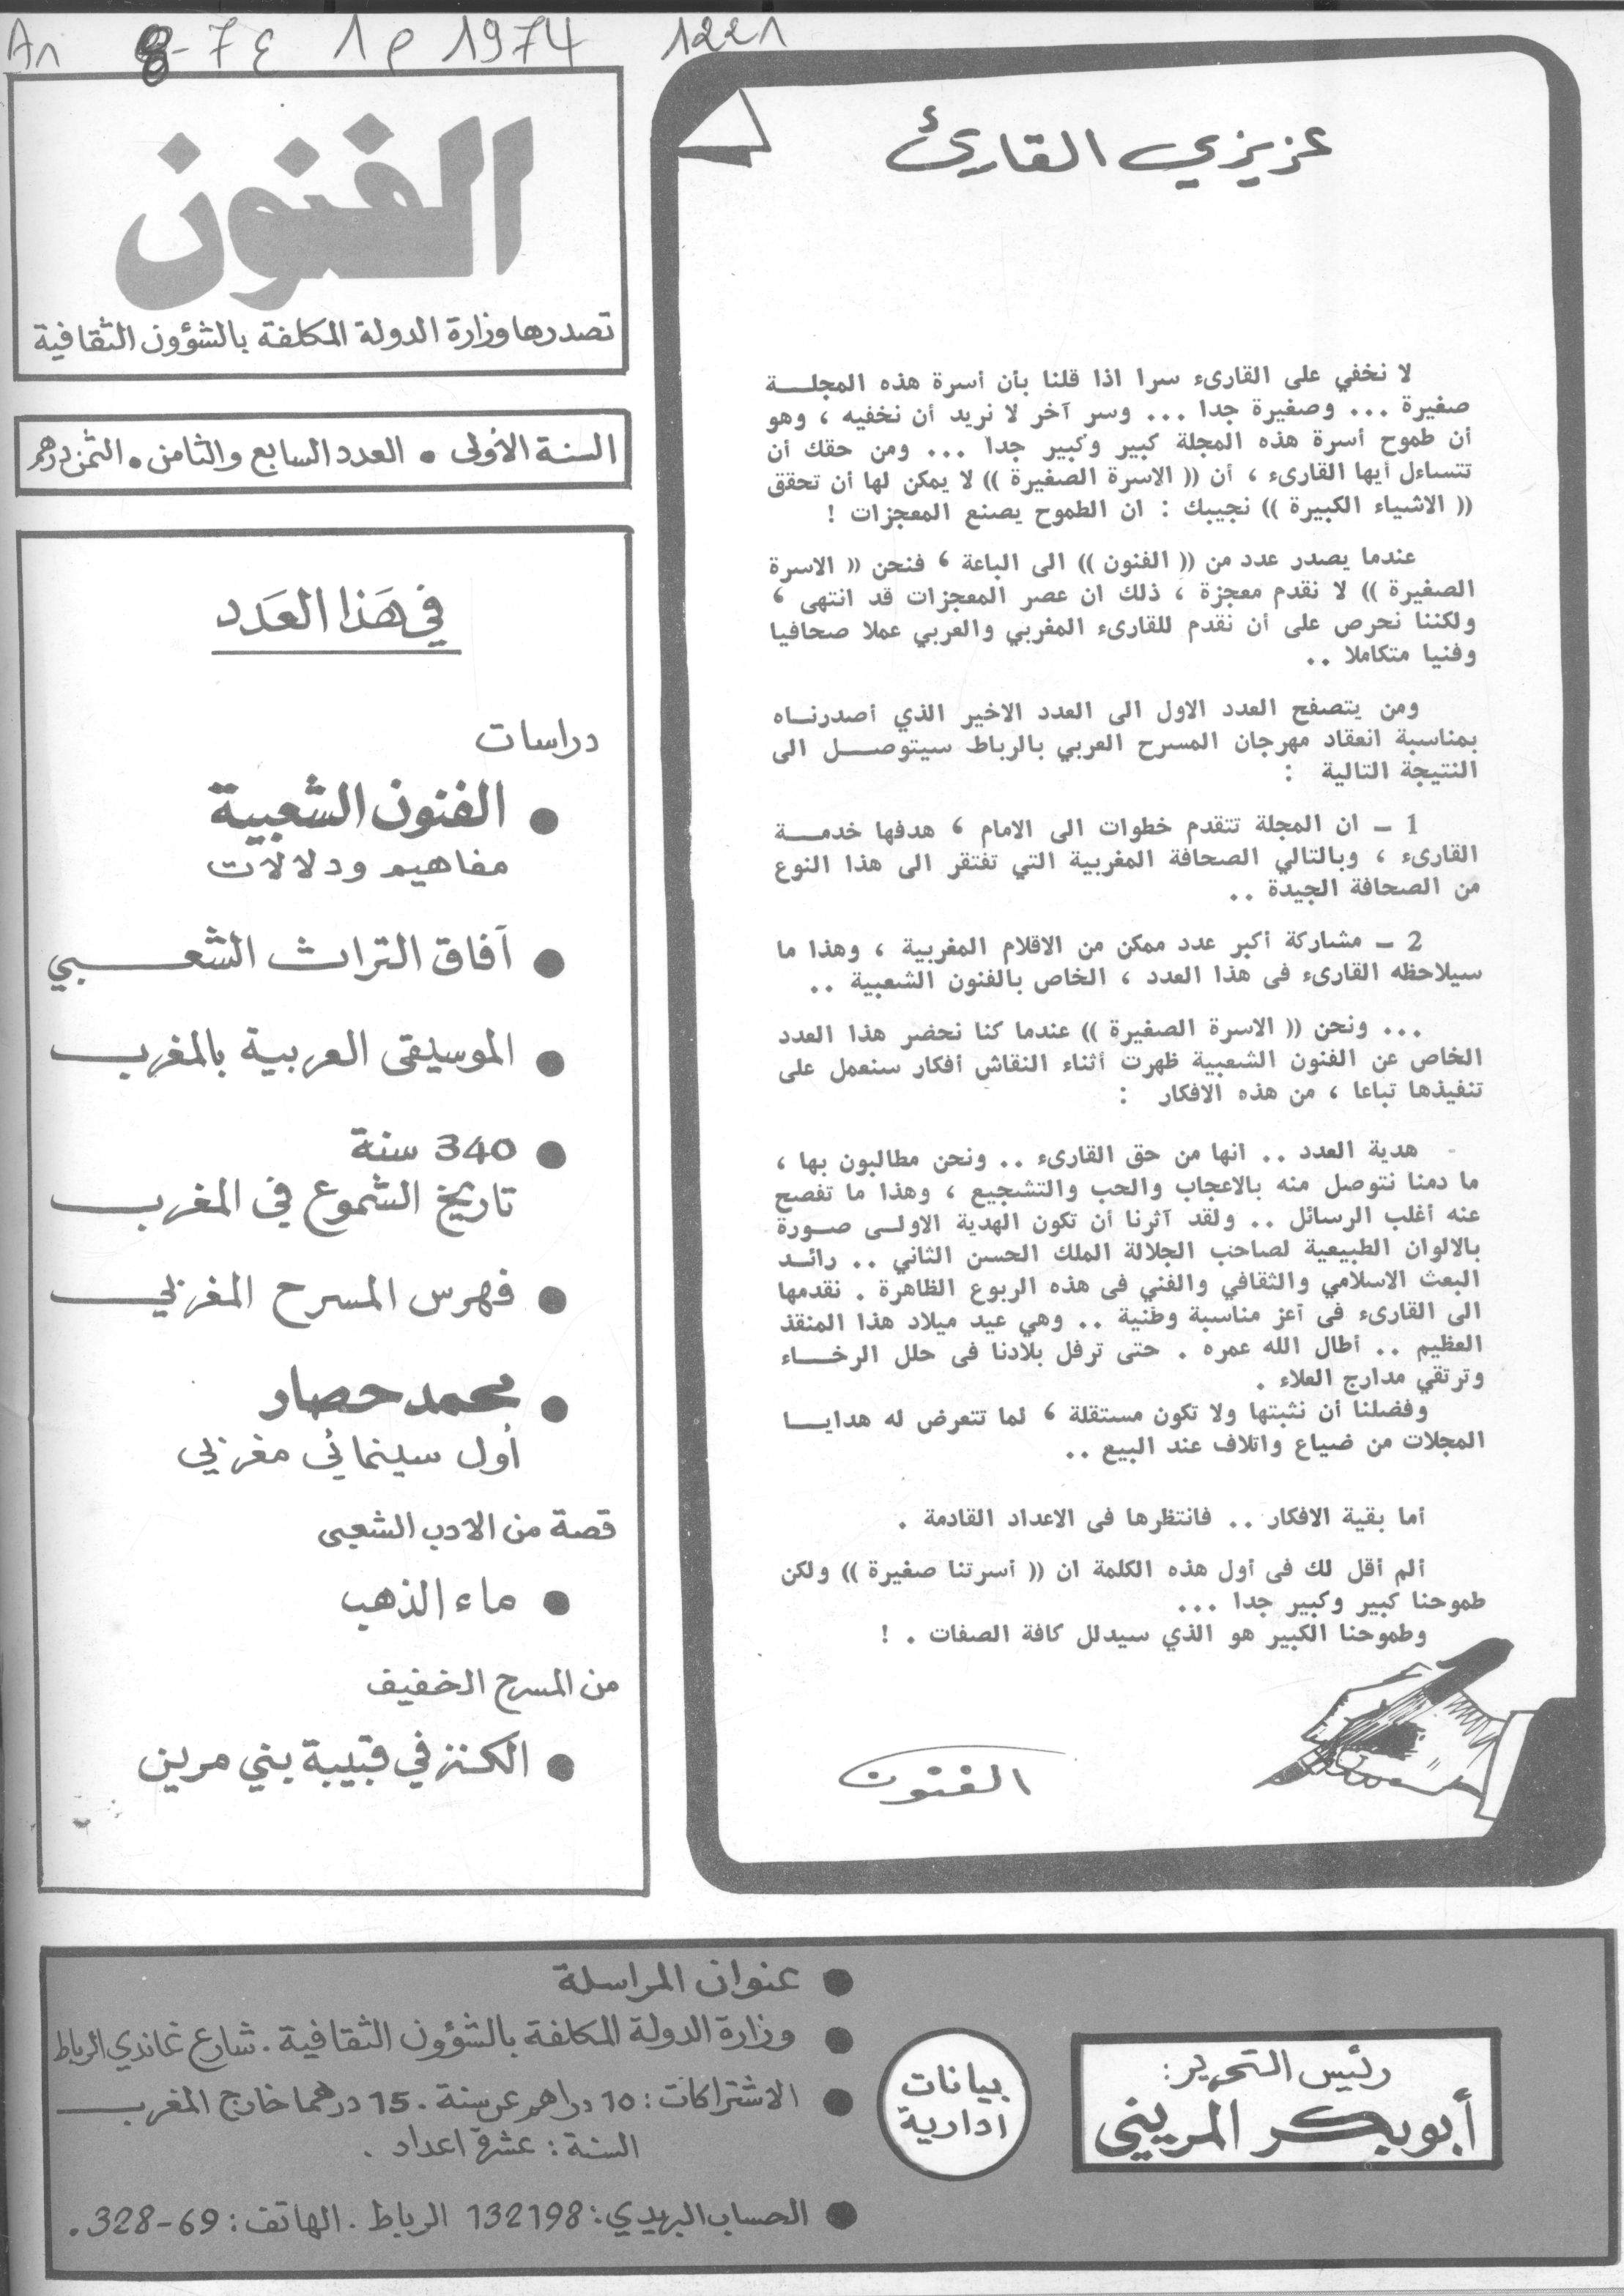 An 8-7 ع 1 م 1974 1221
عزيزي القارئ
لا نخفي على القارىء سرا اذا قلنا بأن أسرة هذه المجلة
صغيرة ... وصغيرة جدا ... وسر آخر لا نريد أن نخفيه ، وهو
أن طموح أسرة هذه المجلة كبير وكبير جدا ... ومن حقك أن
تتساءل أيها القارىء ، أن (( الاسرة الصغيرة )) لا يمكن لها أن تحقق
(( الاشياء الكبيرة )) نجيبك : ان الطموح يصنع المعجزات !
عندما يصدر عدد من (( الفنون )) الى الباعة ، فنحن (( الاسرة
الصغيرة )) لا نقدم معجزة ، ذلك ان عصر المعجزات قد انتهى ،
ولكننا نحرص على أن نقدم للقارىء المغربي والعربي عملا صحافيا
وفنيا متكاملا ..
ومن يتصفح العدد الاول الى العدد الاخير الذي أصدرناه
بمناسبة انعقاد مهرجان المسرح العربي بالرباط سيتوصل الى
النتيجة التالية :
1 ـ ان المجلة تتقدم خطوات الى الامام ، هدفها خدمة
القارىء ، وبالتالي الصحافة المغربية التي تفتقر الى هذا النوع
من الصحافة الجيدة ..
2 ـ مشاركة أكبر عدد ممكن من الاقلام المغربية ، وهذا ما
سيلاحظه القارىء فى هذا العدد ، الخاص بالفنون الشعبية ..
... ونحن (( الاسرة الصغيرة )) عندما كنا نحضر هذا العدد
الخاص عن الفنون الشعبية ظهرت أثناء النقاش أفكار سنعمل على
تنفيذها تباعا ، من هذه الافكار :
هدية العدد .. انها من حق القارىء .. ونحن مطالبون بها ،
ما دمنا نتوصل منه بالاعجاب والحب والتشجيع ، وهذا ما تفصح
عنه أغلب الرسائل .. ولقد آثرنا أن تكون الهدية الاولى صورة
بالالوان الطبيعية لصاحب الجلالة الملك الحسن الثاني .. رائد
البعث الاسلامي والثقافي والفني فى هذه الربوع الظاهرة . نقدمها
الى القارىء فى أعز مناسبة وطنية .. وهي عيد ميلاد هذا المنقذ
العظيم .. أطال الله عمره . حتى ترفل بلادنا فى حلل الرخاء
وترتقي مدارج العلاء .
وفضلنا أن نثبتها ولا تكون مستقلة ، لما تتعرض له هدايا
المجلات من ضياع واتلاف عند البيع ..
أما بقية الافكار .. فانتظرها فى الاعداد القادمة .
ألم أقل لك فى أول هذه الكلمة ان (( أسرتنا صغيرة )) ولكن
طموحنا كبير وكبير جدا ...
وطموحنا الكبير هو الذي سيدلل كافة الصفات . !
الفنون
الفنون
تصدرها وزارة الدولة المكلفة بالشؤون الثقافية
السنة الأولى • العدد السابع والثامن • الثمن درهم
في هَذا العَدَد
دراسات
• الفنون الشعبية
مفاهيم ودلالات
• آفاق التراث الشعبي
• الموسيقى العربية بالمغرب
• 340 سنة
تاريخ الشموع في المغرب
• فهرس المسرح المغربي
• محمد حصار
أول سينمائي مغربي
قصة من الادب الشعبى
• ماء الذهب
من المسرح الخفيف
• الكنز في قبيبة بني مرين
رئيس التحرير:
أبو بكر المريني
بيانات
ادارية
• عنوان المراسلة
• وزارة الدولة المكلفة بالشؤون الثقافية . شارع غاندي الرباط
• الاشتراكات : 10 دراهم عن سنة . 15 درهما خارج المغرب
السنة : عشرة اعداد .
• الحساب البريدي : 132198 الرباط . الهاتف : 69-328 .